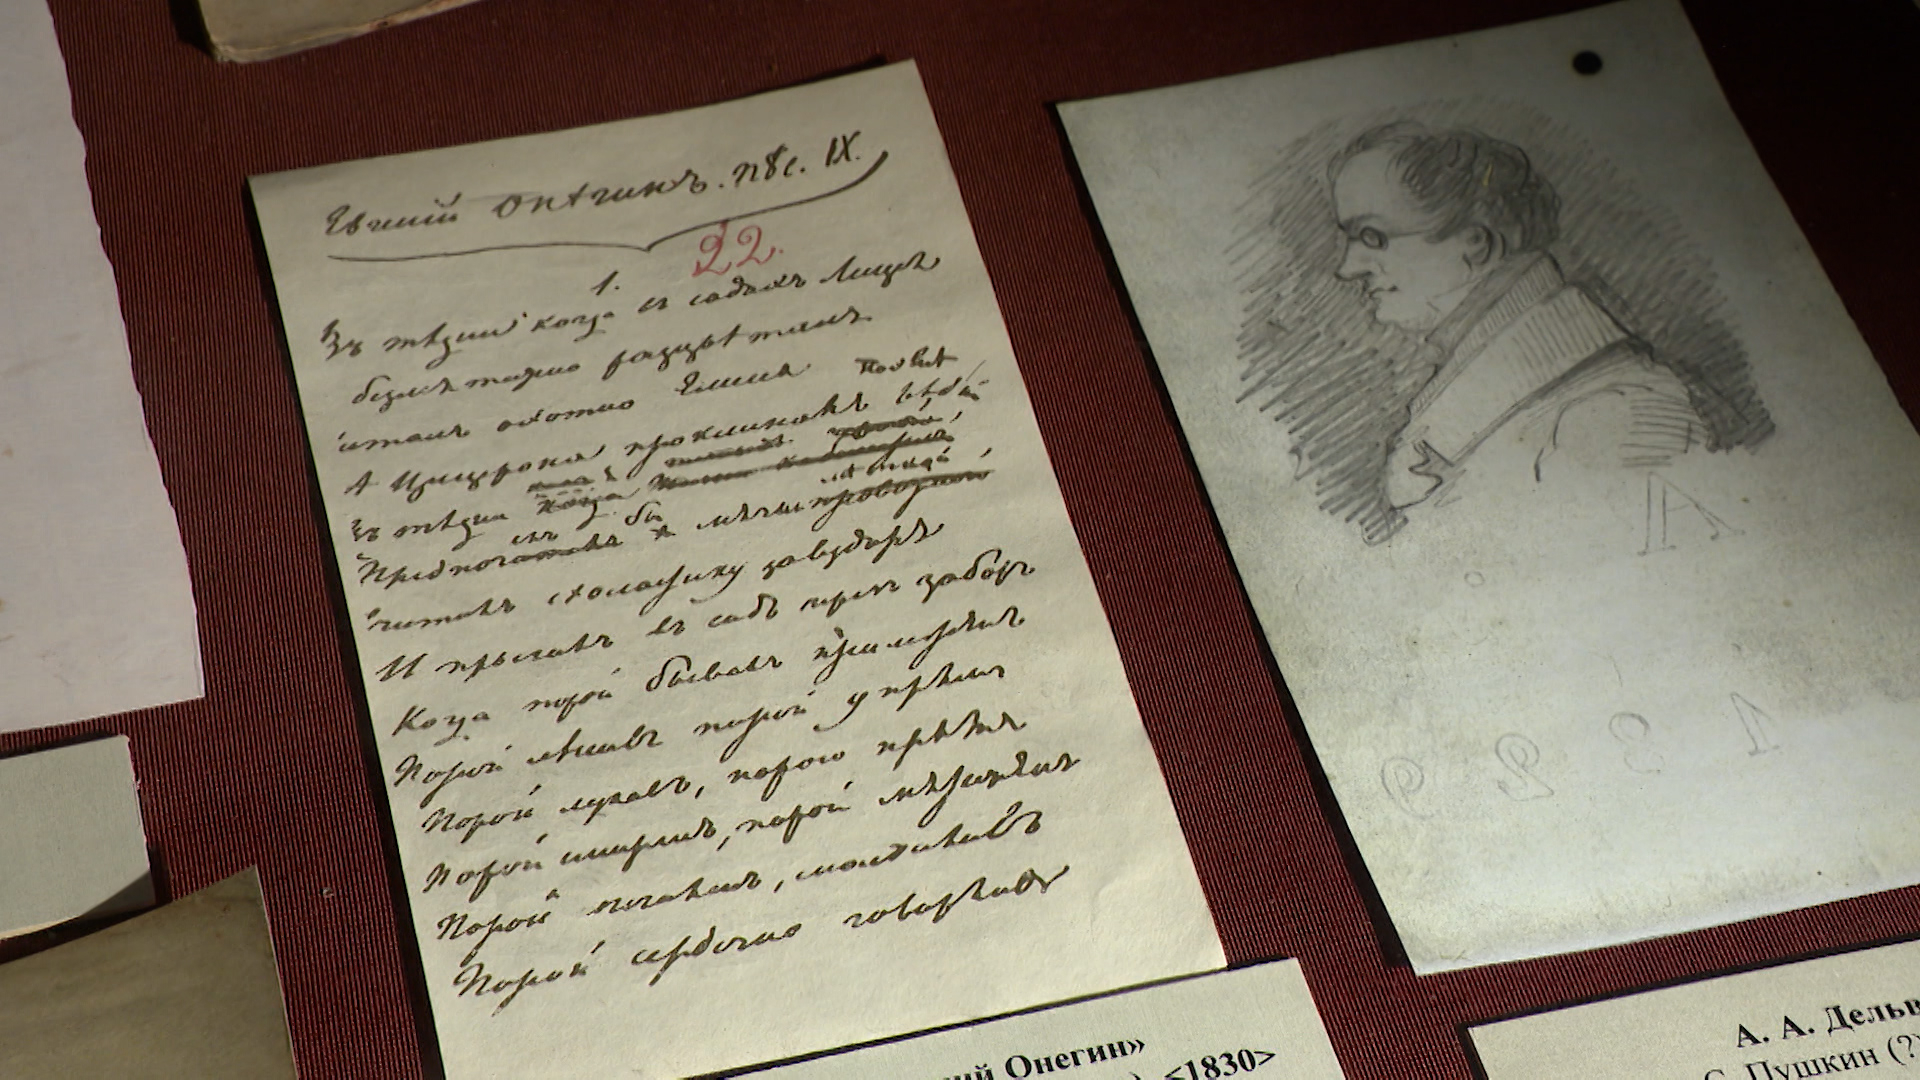 Евгеній Онѣгинъ. Пѣс. IX.
22.
1.
Въ тѣ дни когда въ садахъ Лицея
безмятежно расцвѣталъ
Читалъ охотно Елисея
А Цицерона проклиналъ
Въ тѣ дни
Предпочиталъ
Читалъ схоластику
И прыгалъ въ садъ черезъ заборъ
Когда порой бывалъ прилеженъ
Порой лѣнивъ порой упрямъ
Порой лукавъ, порою прямъ
Порой смиренъ, порой мятеженъ
Порой печаленъ, молчаливъ
Порой сердечно говорливъ
А
1 3 2 9
ий Онегин»
<1830>
А. А. Дельв
С. Пушкин (?)